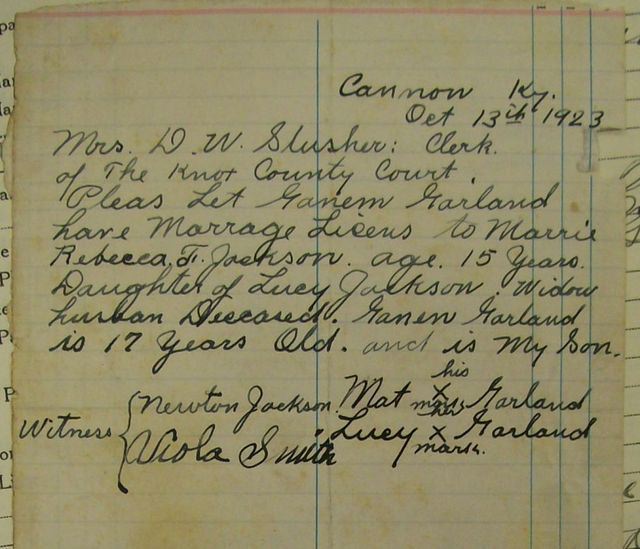 Cannon Ky.
Oct 13th 1923
Mrs. D. W. Slusher: Clerk.
of The Knox County Court.
Pleas Let Ganem Garland
have Marrage Licens to Marrie
Rebecca F. Jackson. age. 15 Years.
Daughter of Lucy Jackson. Widow
husban Deceased. Ganen Garland
is 17 Years Old. and is My Son.
his
Newton Jackson. Mat X Garland
mark
Witness { Lucy X Garland
Viola Smith mark.